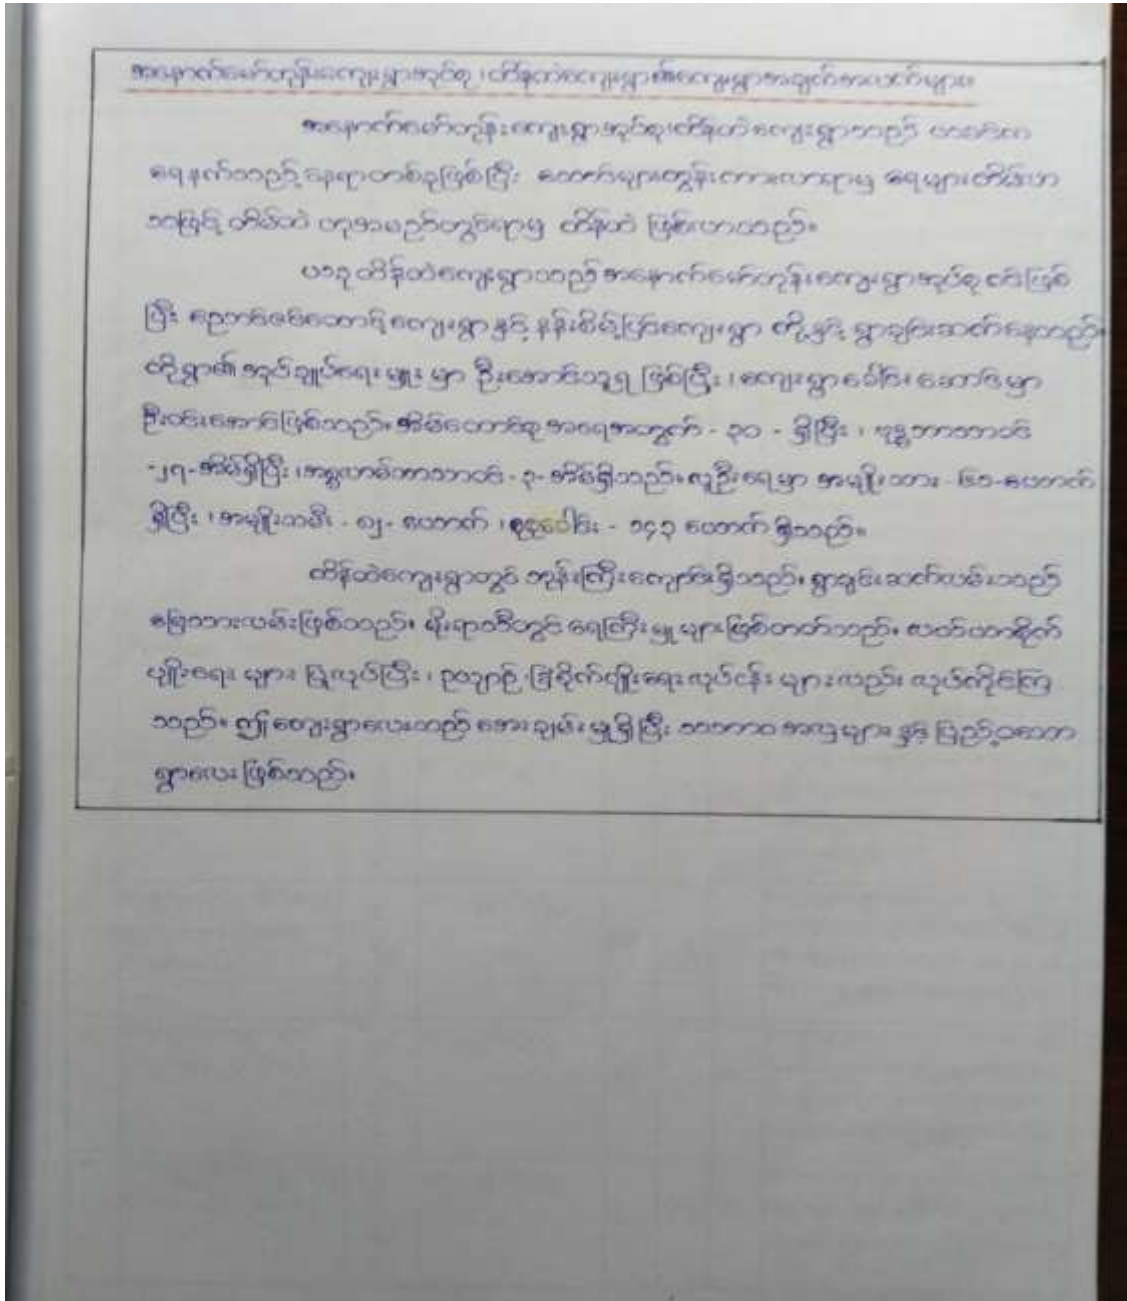 အနောက်ဖော်တုန်းကျေးရွာအုပ်စု၊ တိန်တဲကျေးရွာ၏ကျေးရွာအချက်အလက်များ
အနောက်ဖော်တုန်းကျေးရွာအုပ်စု၊ တိန်တဲကျေးရွာသည် ယခင်က
ရေနက်သည့်နေရာတစ်ခုဖြစ်ပြီး တွန်းကားလာရာမှ ရေများတိမ်ဟ
သဖြင့် တိမ်တဲ ဟုအမည်တွင်ရာမှ တိန်တဲ ဖြစ်လာသည်။
ယခု တိန်တဲကျေးရွာသည် အနောက်ဖော်တုန်းကျေးရွာအုပ်စု ဝင်ဖြစ်
ပြီး ကျေးရွာ နှင့် ကျေးရွာ တို့နှင့် ရွာချင်းဆက်နေသည်။
ထိုရွာ၏ အုပ်ချုပ်ရေးမှူး မှာ ဦးအောင်သူရ ဖြစ်ပြီး ၊ ကျေးရွာခေါင်းဆောင်မှာ
ဦးဝင်းအောင်ဖြစ်သည်။ အိမ်ထောင်စု အရေအတွက် - ၃၀ - ရှိပြီး ၊ ဗုဒ္ဓဘာသာဝင်
-၂၇-အိမ်ရှိပြီး ၊ အစ္စလာမ်ဘာသာဝင် - ၃- အိမ်ရှိသည်။ လူဦးရေမှာ အမျိုးသား - ၆၁-ယောက်
ရှိပြီး ၊ အမျိုးသမီး - ၈၂- ယောက် ၊ စုစုပေါင်း - ၁၄၃ ယောက် ရှိသည်။
တိန်တဲကျေးရွာတွင် ဘုန်းကြီးကျောင်းရှိသည်။ ရွာချင်းဆက်လမ်းသည်
မြေသားလမ်းဖြစ်သည်။ မိုးရာသီတွင် ရေကြီးမှု များဖြစ်တတ်သည်။ လယ်ယာစိုက်
ပျိုးရေး များ ပြုလုပ်ပြီး ၊ ဥယျာဉ် ခြံစိုက်ပျိုးရေးလုပ်ငန်း များလည်း လုပ်ကိုင်ကြ
သည်။ ဤကျေးရွာလေးသည် အေးချမ်းမှုရှိပြီး သဘာဝ အလှများ နှင့် ပြည့်ဝသော
ရွာလေး ဖြစ်သည်။